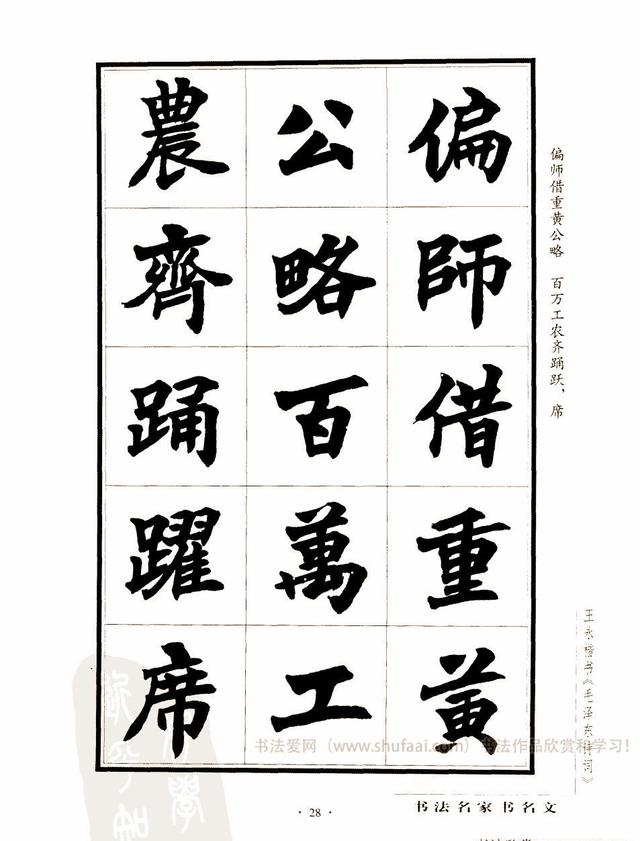 偏師借重黄
公略百萬工
農齊踊躍席
偏师借重黄公略 百万工农齐踊跃，席
王永楷书《毛泽东诗词》
书法爱网（www.shufaai.com）书法作品欣赏和学习！
书法名家书名文
· 28 ·